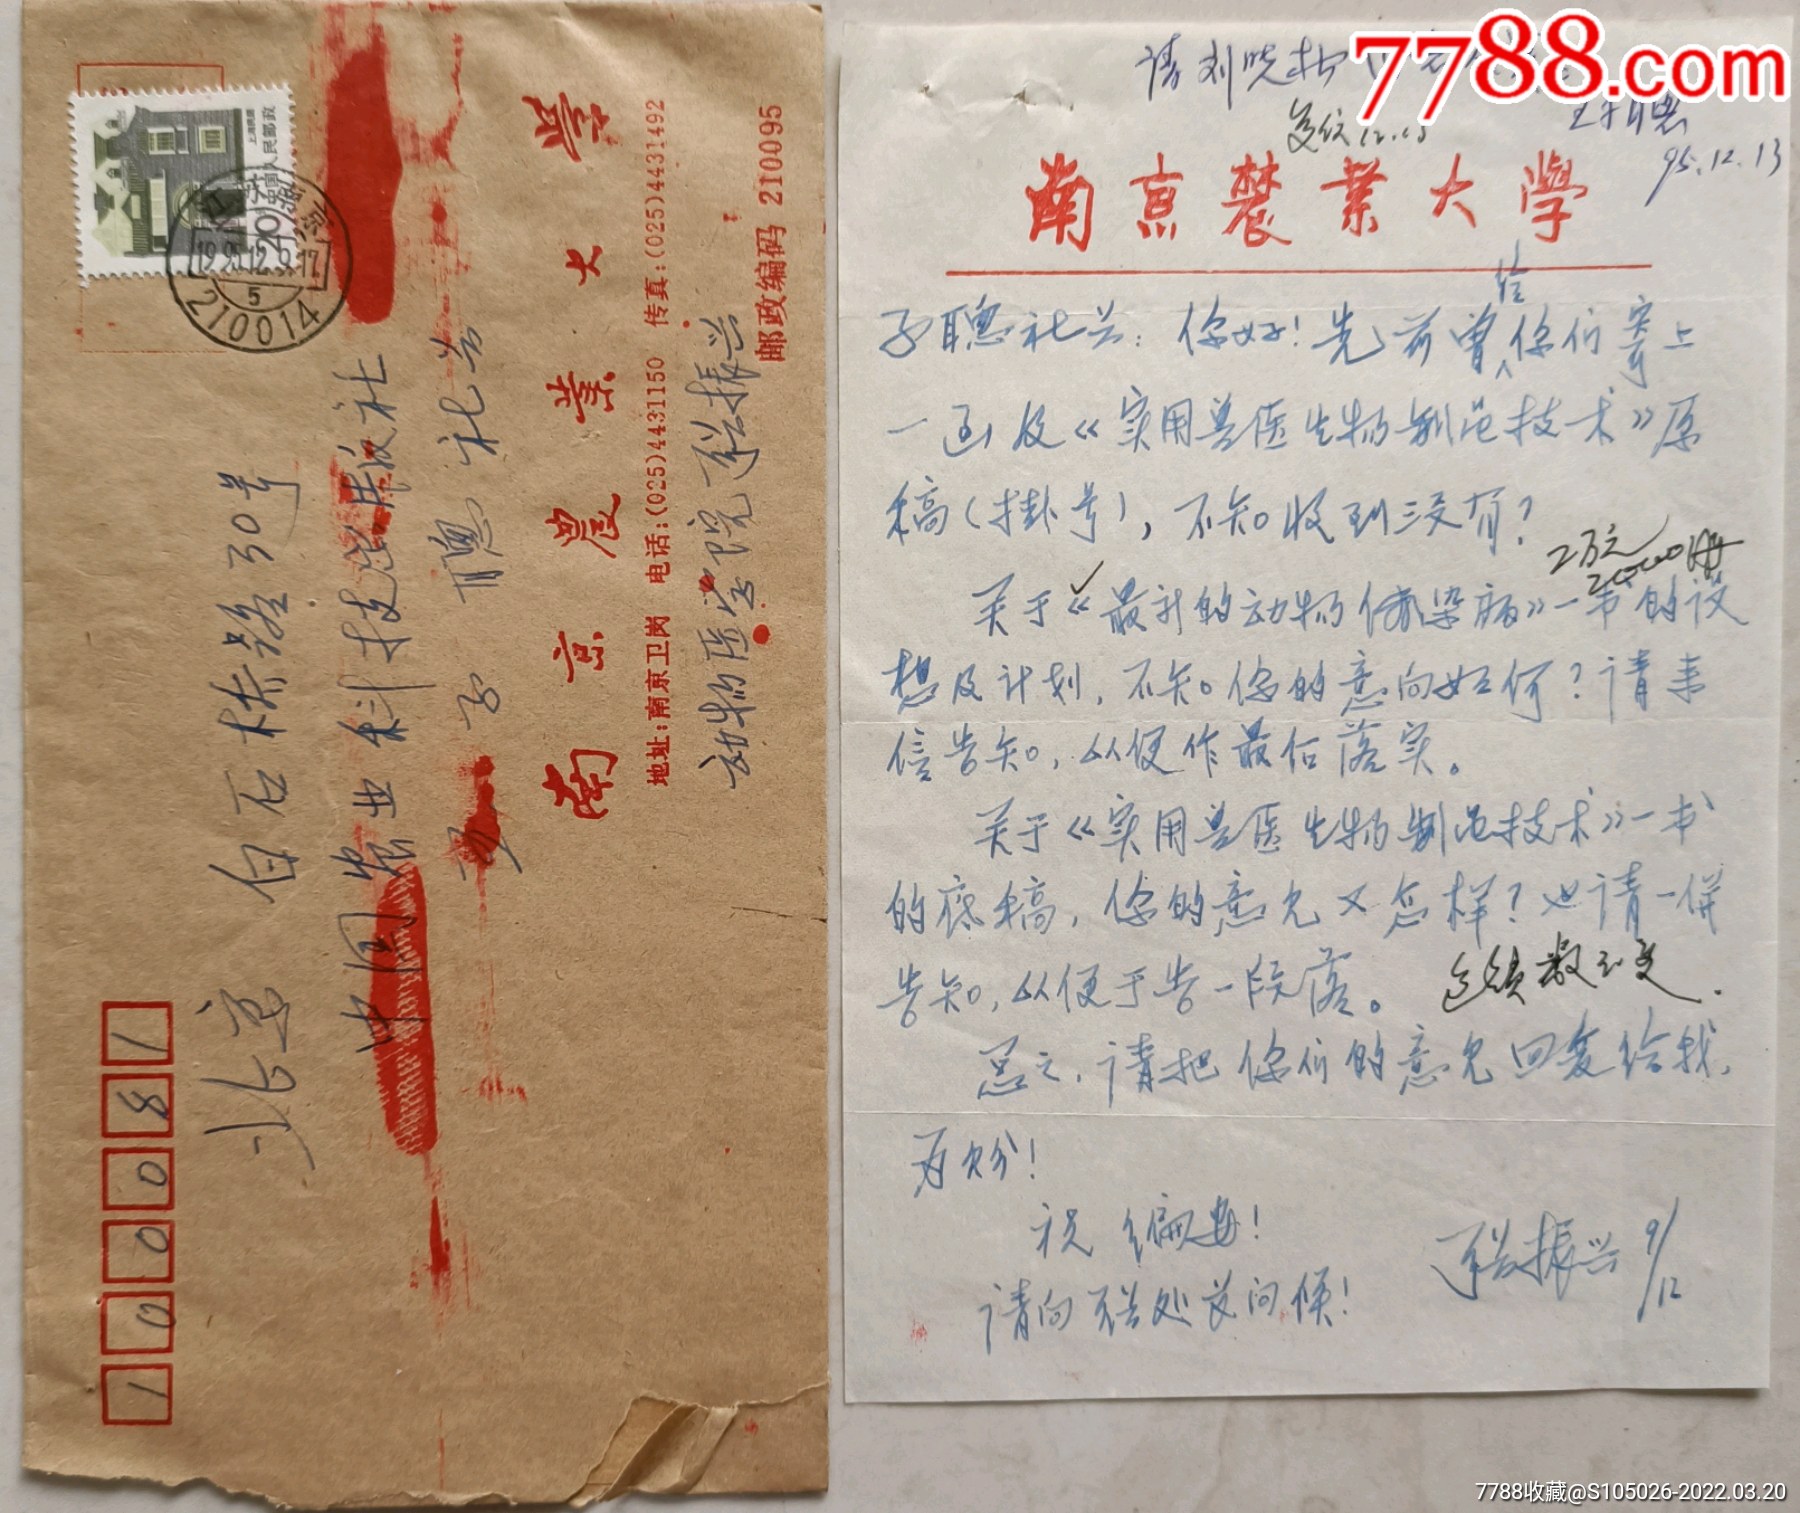 100081
北京 白石桥路30号
中国农业科技出版社
王子聪社长
南京農業大學
地址:南京卫岗 电话:(025)4431150 传真:(025)4431492
动物医学院 张振兴
邮政编码 210095
上海民居
中国人民邮政
20
210014
5
请刘晓松
王子聪
95.12.13
复信12.13
南京農業大學
子聪社长：你好！先前曾给你们寄上
一函及《实用兽医生物制品技术》原
稿（挂号），不知收到没有？
2万元
2000册
关于《最新的动物传染病》一书的设
想及计划，不知你的意向如何？请来
信告知，以便作最后落实。
关于《实用兽医生物制品技术》一书
的底稿，你的意见又怎样？也请一併
告知，以便于告一段落。
总之，请把你们的意见回复给我，
为盼！
祝编安！
张振兴 9/12
请向张处长问候！
7788.com
7788收藏@S105026-2022.03.20